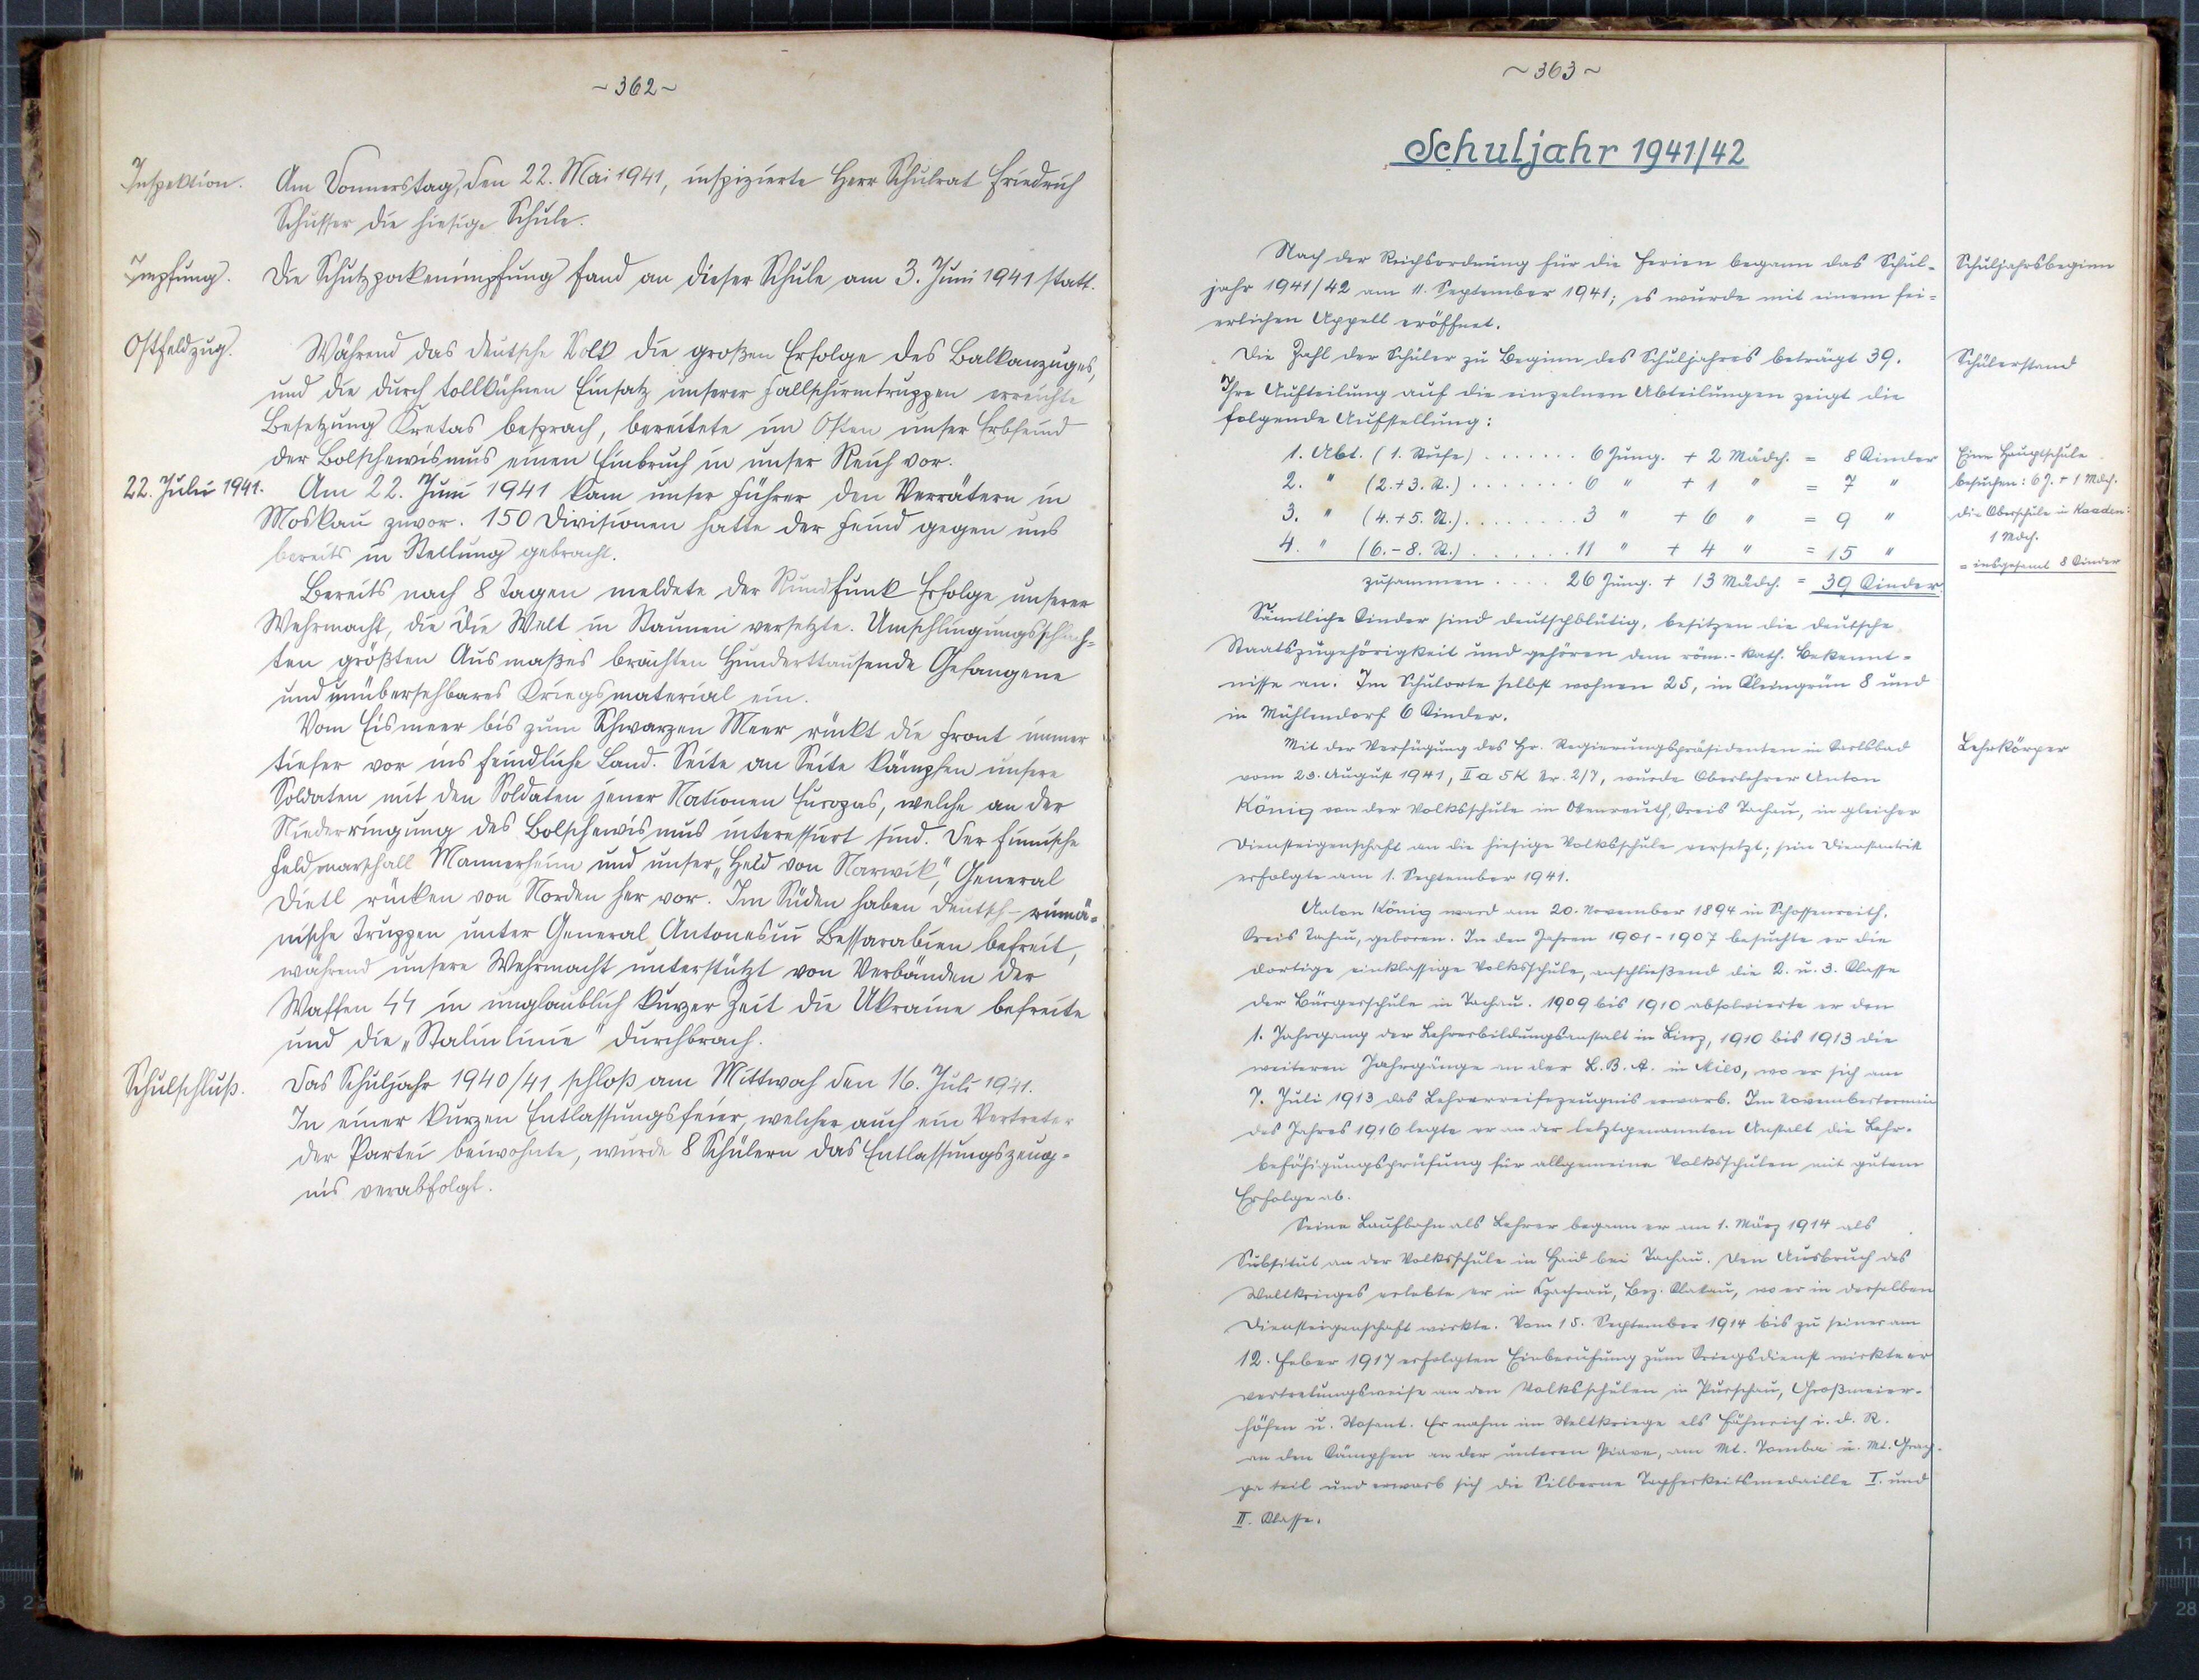 ~ 362 ~
Inspektion.
Am Donnerstag, den 22. Mai 1941, inspizierte Herr Schulrat Friedrich
Schusser die hiesige Schule.
Impfung.
Die Schutzpockenimpfung fand an dieser Schule am 3. Juni 1941 statt.
Ostfeldzug.
Während das deutsche Volk die großen Erfolge des Balkanzuges,
und die durch tollkühnen Einsatz unserer Fallschirmtruppen erreichte
Besetzung Kretas besprach, bereitete im Osten unser Erbfeind
der Bolschewismus einen Einbruch in unser Reich vor.
22. Juli 1941.
Am 22. Juni 1941 kam unser Führer den Verrätern in
Moskau zuvor. 150 Divisionen hatte der Feind gegen uns
bereits in Stellung gebracht.
Bereits nach 8 Tagen meldete der Rundfunk Erfolge unserer
Wehrmacht, die die Welt in Staunen versetzte. Umschlingungsschlach-
ten größten Ausmaßes brachten Hunderttausende Gefangene
und unübersehbares Kriegsmaterial ein.
Vom Eismeer bis zum Schwarzen Meer rückt die Front immer
tiefer vor ins feindliche Land. Seite an Seite kämpfen unsere
Soldaten mit den Soldaten jener Nationen Europas, welche an der
Niederringung des Bolschewismus interessiert sind. Der finnische
Feldmarschall Mannerheim und unser „Held von Narwik", General
Dietl rücken von Norden her vor. Im Süden haben deutsch-rumä-
nische Truppen unter General Antonesiu Bessarabien befreit,
während unsere Wehrmacht unterstützt von Verbänden der
Waffen SS in unglaublich kurzer Zeit die Ukraine befreite
und die „Stalinlinie" durchbrach.
Schulschluß.
Das Schuljahr 1940/41 schloß am Mittwoch den 16. Juli 1941.
In einer kurzen Entlassungsfeier, welcher auch ein Vertreter
der Partei beiwohnte, wurde 8 Schülern das Entlassungszeug-
nis verabfolgt.
~ 363 ~
Schuljahr 1941/42
Nach der Reichsordnung für die Ferien begann das Schul-
jahr 1941/42 am 11. September 1941; es wurde mit einem fei-
erlichen Appell eröffnet.
Schuljahrsbeginn
Die Zahl der Schüler zu Beginn des Schuljahres beträgt 39.
Ihre Aufteilung auf die einzelnen Abteilungen zeigt die
folgende Aufstellung:
Schülerstand
1. Abt. (1. Stufe) ....... 6 Jung. + 2 Mädch. = 8 Kinder
2. " (2.+3. St.) ....... 6 " + 1 " = 7 "
3. " (4.+5. St.) ........ 3 " + 6 " = 9 "
4. " (6.-8. St.) ...... 11 " + 4 " = 15 "
zusammen .... 26 Jung. + 13 Mädch. = 39 Kinder.
Eine Hauptschule
besuchen: 6 J. + 1 Mdch.
die Oberschule in Kaaden:
1 Mdch.
= insgesamt 8 Kinder
Sämtliche Kinder sind deutschblütig, besitzen die deutsche
Staatszugehörigkeit und gehören dem röm.-kath. Bekennt-
nisse an. Im Schulorte selbst wohnen 25, in Kleingrün 8 und
in Mühlendorf 6 Kinder.
Mit der Verfügung des Hr. Regierungspräsidenten in Karlsbad
vom 23. August 1941, II a 5 K Nr. 2/7, wurde Oberlehrer Anton
König von der Volksschule in Obenreuth, Kreis Tachau, in gleicher
Diensteigenschaft an die hiesige Volksschule versetzt; sein Dienstantritt
erfolgte am 1. September 1941.
Lehrkörper
Anton König ward am 20. November 1894 in Schossenreith,
Kreis Tachau, geboren. In den Jahren 1901-1907 besuchte er die
dortige einklassige Volksschule, anschließend die 2. u. 3. Klasse
der Bürgerschule in Tachau. 1909 bis 1910 absolvierte er den
1. Jahrgang der Lehrerbildungsanstalt in Linz, 1910 bis 1913 die
weiteren Jahrgänge an der L. B. A. in Mies, wo er sich am
7. Juli 1913 das Lehrerreifezeugnis erwarb. Im Novembertermin
des Jahres 1916 legte er an der letztgenannten Anstalt die Lehr-
befähigungsprüfung für allgemeine Volksschulen mit gutem
Erfolge ab.
Seine Laufbahn als Lehrer begann er am 1. März 1914 als
Substitut an der Volksschule in Haid bei Tachau. Den Ausbruch des
Weltkrieges erlebte er in Bez. wo er in derselben
Diensteigenschaft wirkte. Vom 15. September 1914 bis zu seiner am
12. Feber 1917 erfolgten Einberufung zum Kriegsdienst wirkte er
vertretungsweise an den Volksschulen in Purschau, Großmeier-
höfen u. Er nahm im Weltkriege als Fähnrich i. d. R.
an den Kämpfen an der unteren Piave, am Mt. Tomba u. Mt. Grap-
pa teil und erwarb sich die Silberne Tapferkeitsmedaille I. und
II. Klasse.